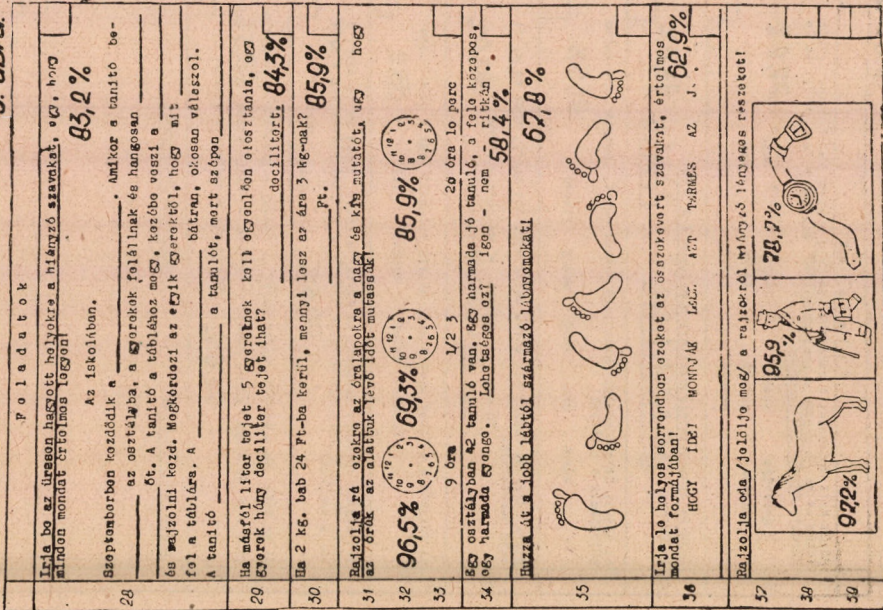 Feladatok
Irja be az üresen hagyott helyekre a hiányzó szavakat, ugy, hogy
minden mondat értelmes legyen!
83,2%
Az iskolában.
28
Szeptemberben kezdődik a ____. Amikor a tanitó be-
____ az osztályba, a gyerekek felállnak és hangosan ____
____ őt. A tanitó a táblához megy, kezébe veszi a ____
és rajzolni kezd. Megkérdezi az egyik gyerektől, hogy mit ____
fel a táblára. A ____ bátran, okosan válaszol.
A tanitó ____ a tanulót, mert szépen ____
29
Ha másfél liter tejet 5 gyereknek kell egyenlően elosztania, egy
gyerek hány deciliter tejet ihat? ____ decilitert. 84,3%
30
Ha 2 kg. bab 24 Ft-ba kerül, mennyi lesz az ára 3 kg-nak?
____ Ft. 85,9%
31
Rajzolja rá ezekre az óralapokra a nagy és kis mutatót, ugy hogy
az órák az alattuk lévő időt mutassák!
32
96,5% 69,3% 85,9%
33
9 óra 1/2 3 20 óra 10 perc
34
Egy osztályban 42 tanuló van. Egy harmada jó tanuló, a fele közepes,
egy harmada gyenge. Lehetséges ez? igen - nem - ritkán.
58,4%
Huzza át a jobb lábtól származó lábnyomokat!
67,8%
35
Irja le helyes sorrendben ezeket az összekevert szavakat, értelmes
mondat formájában!
36
HOGY IDEI MONDJÁK LESZ AZT TERMÉS AZ JÓ. 62,9%
Rajzolja oda /jelölje meg/ a rajzokról hiányzó lényeges részeket!
37
38
39
97,2% 95,9% 78,7%